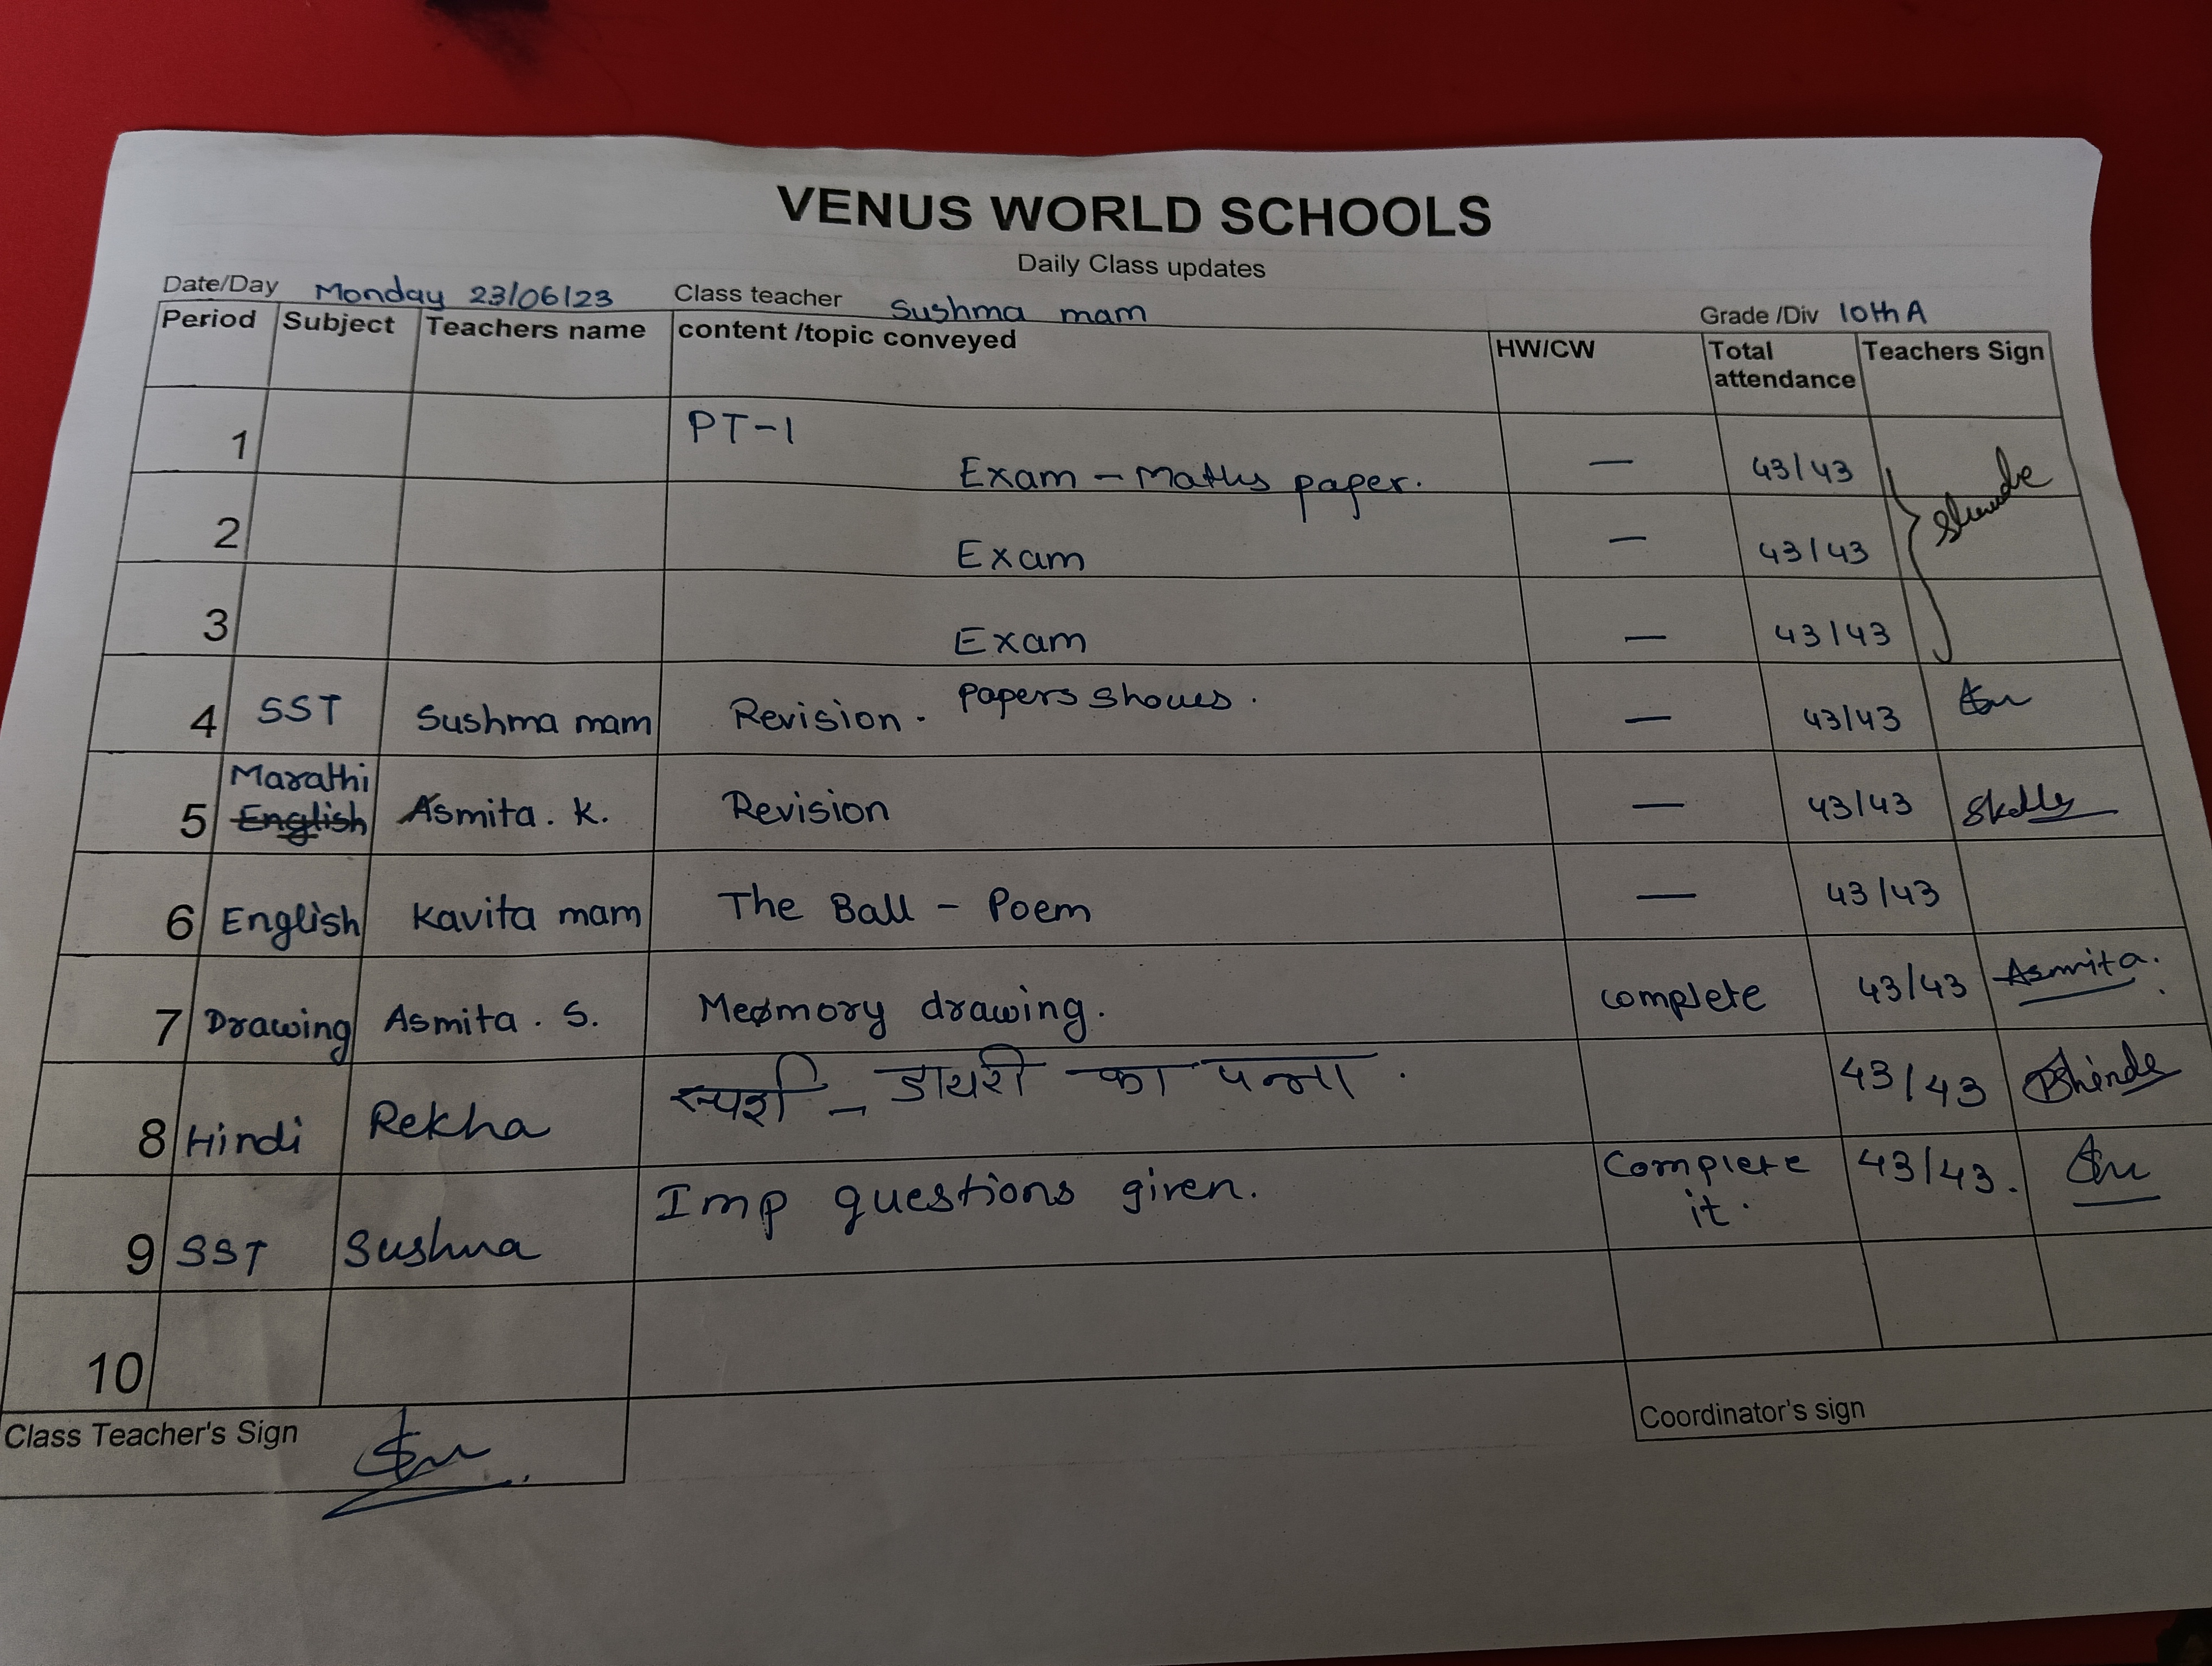 VENUS WORLD SCHOOLS
Daily Class updates
Date/Day Monday 23/06/23 Class teacher Sushma mam Grade /Div 10th A
Period Subject Teachers name content /topic conveyed HW/CW Total attendance Teachers Sign
1 PT-1
Exam - Maths paper. — 43/43
2 Exam — 43/43
3 Exam — 43/43
4 SST Sushma mam Revision . papers shows . — 43/43
Marathi
5 English Asmita . K. Revision — 43/43
6 English Kavita mam The Ball - Poem — 43/43
7 Drawing Asmita . S. Memory drawing. complete 43/43 Asmita.
8 Hindi Rekha स्पर्श - डायरी का पन्ना . 43/43 Shinde
9 SST Sushma Imp questions given. Complete it. 43/43.
10
Class Teacher's Sign
Coordinator's sign